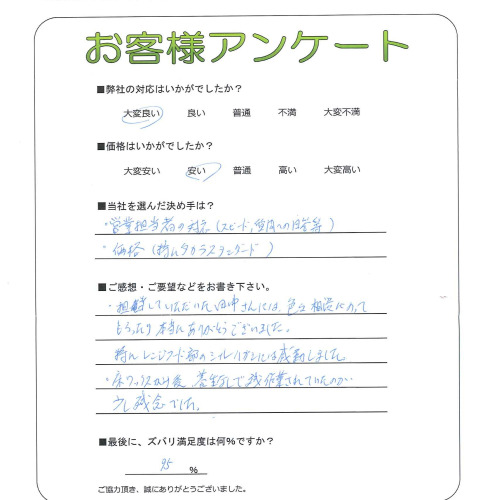 お客様アンケート
■弊社の対応はいかがでしたか？
大変良い 良い 普通 不満 大変不満
■価格はいかがでしたか？
大変安い 安い 普通 高い 大変高い
■当社を選んだ決め手は？
・営業担当者の対応（スピード，質問への回答等）
・価格（特にタカラスタンダード）
■ご感想・ご要望などをお書き下さい。
・担当していただいた田中さんには、色々相談にのって
もらったり本当にありがとうございました。
特にレンジフード部のシルバーには感動しました。
・床ワックスがけ後、養生なしで残作業されていたのが
少し残念でした。
■最後に、ズバリ満足度は何％ですか？
95 %
ご協力頂き、誠にありがとうございました。